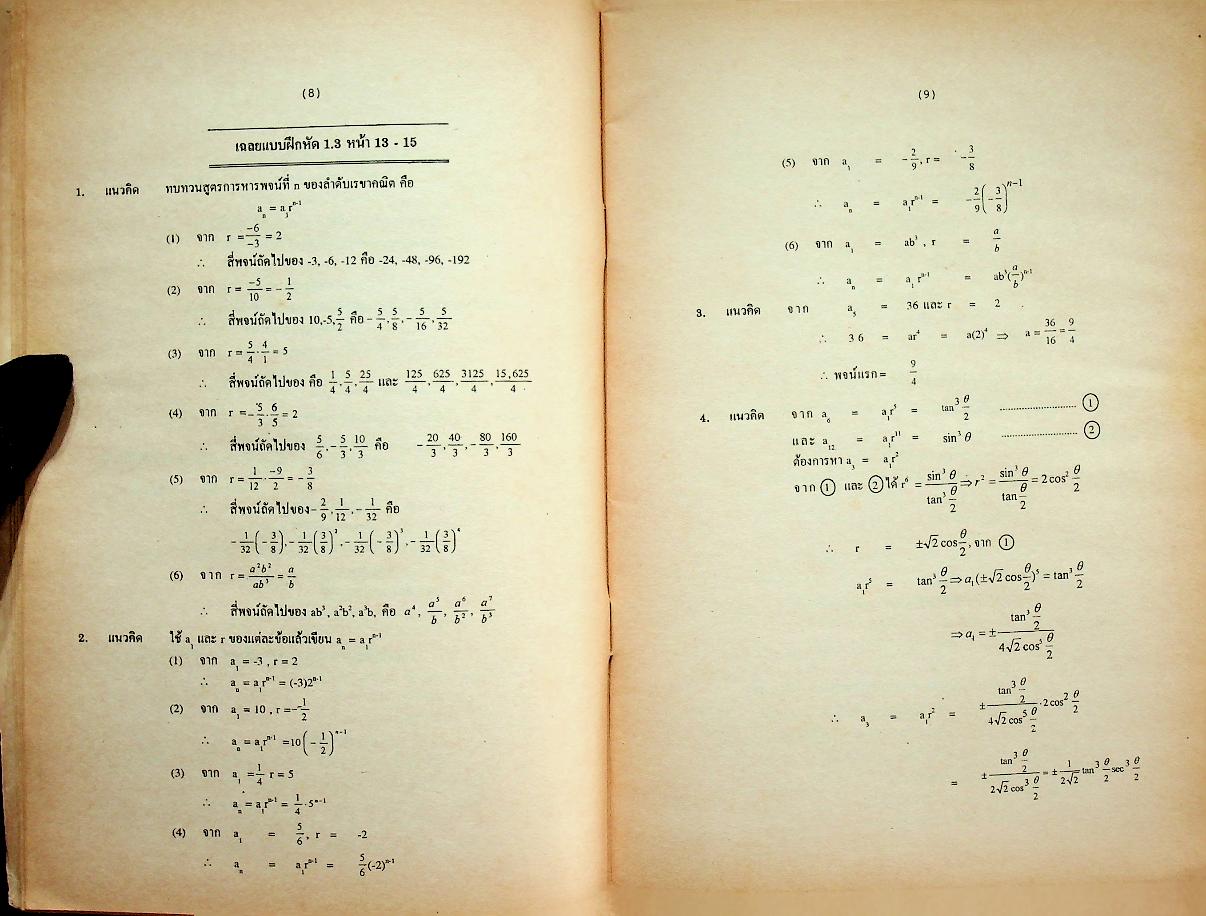 (8)
เฉลยแบบฝึกหัด 1.3 หน้า 13 - 15
1. แนวคิด ทบทวนสูตรการหารพจน์ที่ n ของลำดับเรขาคณิต คือ
aₙ = a₁rⁿ⁻¹
(1) จาก r = -6/-3 = 2
∴ สี่พจน์ถัดไปของ -3, -6, -12 คือ -24, -48, -96, -192
(2) จาก r = -5/10 = -1/2
∴ สี่พจน์ถัดไปของ 10,-5,5/2 คือ -5/4, 5/8, -5/16, 5/32
(3) จาก r = 5/4 · 4/1 = 5
∴ สี่พจน์ถัดไปของ คือ 1/4, 5/4, 25/4 และ 125/4, 625/4, 3125/4, 15,625/4
(4) จาก r = -5/3 · 6/5 = 2
∴ สี่พจน์ถัดไปของ 5/6, -5/3, 10/3 คือ -20/3, 40/3, -80/3, 160/3
(5) จาก r = 1/12 · -9/2 = -3/8
∴ สี่พจน์ถัดไปของ -2/9, 1/12, -1/32 คือ
-1/32(-3/8), -1/32(3/8)², -1/32(-3/8)³, -1/32(3/8)⁴
(6) จาก r = a²b²/ab³ = a/b
∴ สี่พจน์ถัดไปของ ab³, a²b², a³b, คือ a⁴, a⁵/b, a⁶/b², a⁷/b³
2. แนวคิด ใช้ a₁ และ r ของแต่ละข้อแล้วเขียน aₙ = a₁rⁿ⁻¹
(1) จาก a₁ = -3 , r = 2
∴ aₙ = a₁rⁿ⁻¹ = (-3)2ⁿ⁻¹
(2) จาก a₁ = 10 , r = -1/2
∴ aₙ = a₁rⁿ⁻¹ = 10(-1/2)ⁿ⁻¹
(3) จาก a₁ = 1/4 r = 5
∴ aₙ = a₁rⁿ⁻¹ = 1/4 · 5ⁿ⁻¹
(4) จาก a₁ = 5/6, r = -2
∴ aₙ = a₁rⁿ⁻¹ = 5/6(-2)ⁿ⁻¹
(9)
(5) จาก a₁ = -2/9, r = -3/8
∴ aₙ = a₁rⁿ⁻¹ = -2/9(-3/8)ⁿ⁻¹
(6) จาก a₁ = ab³ , r = a/b
∴ aₙ = a₁rⁿ⁻¹ = ab³(a/b)ⁿ⁻¹
3. แนวคิด จาก a₅ = 36 และ r = 2
∴ 36 = ar⁴ = a(2)⁴ ⇒ a = 36/16 = 9/4
∴ พจน์แรก = 9/4
4. แนวคิด จาก a₆ = a₁r⁵ = tan³ θ/2 .......................... ①
และ a₁₂ = a₁r¹¹ = sin³ θ .......................... ②
ต้องการหา a₃ = a₁r²
จาก ① และ ② ได้ r⁶ = sin³ θ / tan³ θ/2 ⇒ r² = sin³ θ / tan θ/2 = 2cos² θ/2
∴ r = ±√2 cos θ/2, จาก ①
a₁r⁵ = tan³ θ/2 ⇒ a₁(±√2 cos θ/2)⁵ = tan³ θ/2
⇒ a₁ = ± tan³ θ/2 / 4√2 cos⁵ θ/2
∴ a₃ = a₁r² = ± tan³ θ/2 / 4√2 cos⁵ θ/2 · 2cos² θ/2
= ± tan³ θ/2 / 2√2 cos³ θ/2 = ± 1/2√2 tan³ θ/2 sec³ θ/2